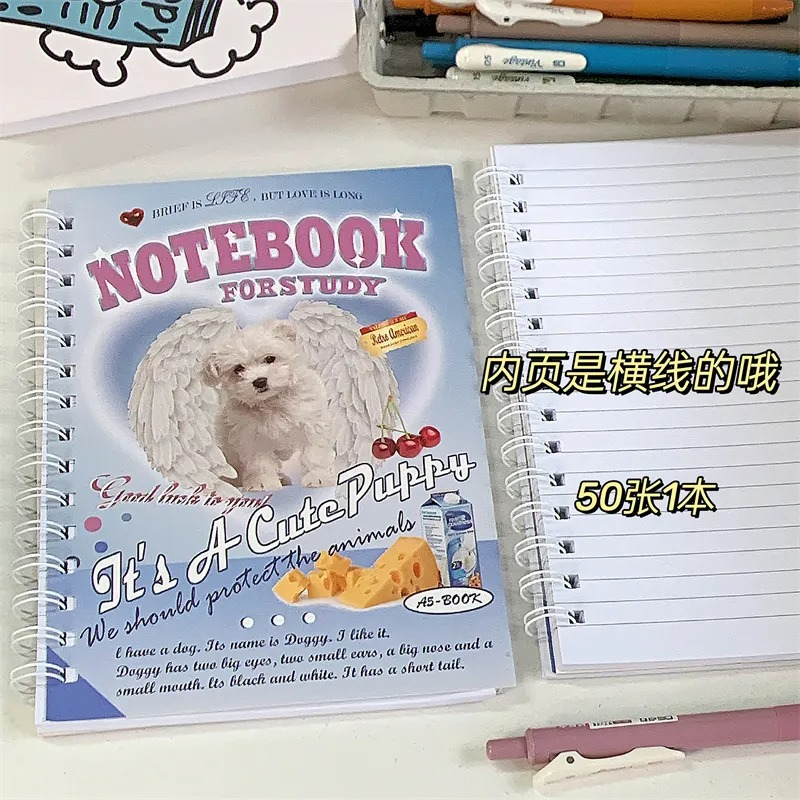 BRIEF IS LIFE, BUT LOVE IS LONG
NOTEBOOK
FOR STUDY
Retro American
Good luck to you!
It's A Cute Puppy
We should protect the animals
A5-BOOK
l have a dog. Its name is Doggy. I like it.
Doggy has two big eyes, two small ears, a big nose and a
small mouth. lts black and white. It has a short tail.
内页是横线的哦
50张1本
Vintage